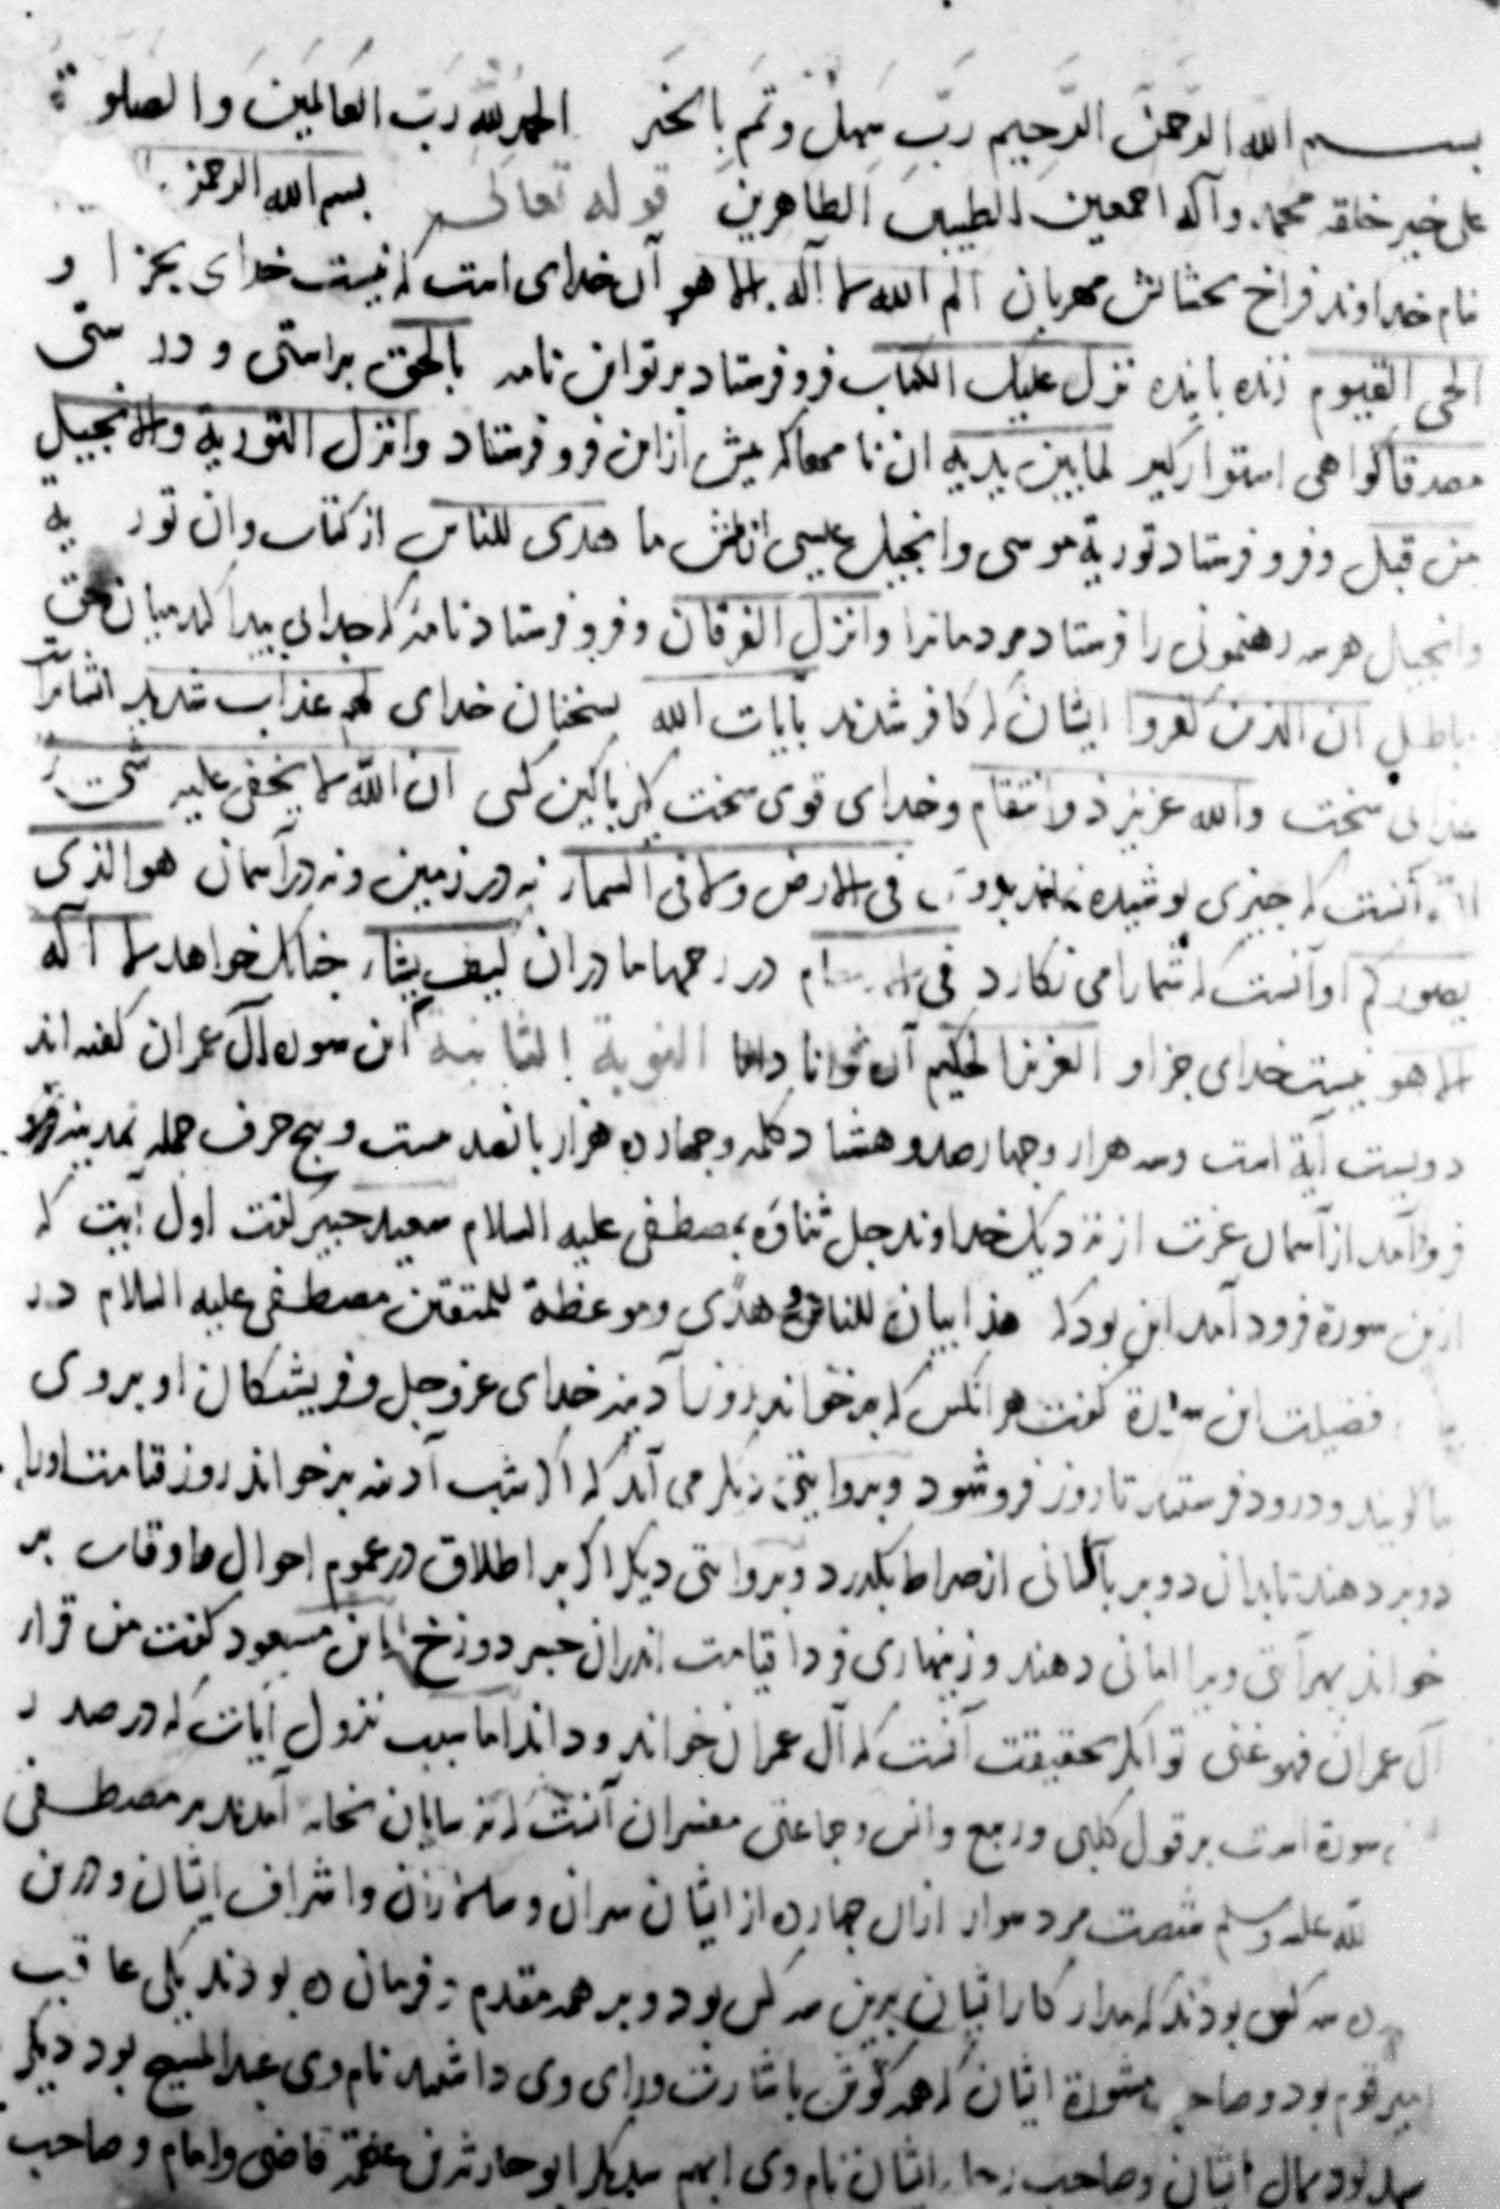 بسم الله الرحمن الرحیم رب سهل و تمم بالخیر الحمد لله رب العالمین والصلوة
علی خیر خلقه محمد وآله اجمعین الطیبین الطاهرین قوله تعالی بسم الله الرحمن
نام خداوند فراخ بخشایش مهربان الم الله لا اله الا هو آن خدای است که نیست خدای بجز ا و
الحی القیوم زنده باینده نزل علیک الکتاب فرو فرستاد بر تو این نامه بالحق براستی و در ستی
مصدقا کواهی استوار کیر لما بین یدیه ان نامهاکه بیش ازین فرو فرستاد وانزل التوریة والانجیل
من قبل وفرو فرستاد توریة موسی وانجیل عیسی هدی للناس از کتاب وان تور یة
وانجیل هر سه رهنمونی را فرستاد مردمانرا وانزل الفرقان وفرو فرستاد نامه که جدای بیدا کند میان حق
باطل ان الذین کفروا ایشان که کافر شدند بآیات الله بسخنان خدای لهم عذاب شدید ایشانرا
عذابی سخت والله عزیز ذو انتقام وخدای قوی سخت کیر باکین کس ان الله لا یخفی علیه شئ
آنست که جیزی بوشیده نماند برو فی الارض ولا فی السماء نه در زمین ونه در آسمان هو الذی
یصورکم او آنست که شما را می نکارد فی الارحام در رحمها مادران کیف یشاء جنانک خواهد لا اله
الا هو نیست خدای جز او العزیز الحکیم آن توانا دانا النوبة الثانیة این سوره آل عمران کفته اند
دویست آیة است وسه هزار وجهارصد وهشتاد کلمه وجهارده هزار بانصد بیست و بنج حرف جمله بمدینه
فرو آمد از آسمان عزت از نزدیک خداوند جل ثناؤه بمصطفی علیه السلام سعید جبیر کفت اول آیت که
ازین سورة فرود آمد این بود که هذا بیان للناس وهدی وموعظة للمتقین مصطفی علیه السلام در
فضیلت این سورة کفت هر آنکس که بر خواند روز آدینه خدای عز وجل وفریشتکان او بروی
ودرود فرستند تا روز فرو شود وبروایتی دیکر می آید که اکر شب آدینه بر خواند روز قیامت اورا
دو بر دهند تا بدان دو بر بآسانی از صراط بکذرد وبروایتی دیکر اکر بر اطلاق در عموم احوال واوقات بر
خواند بهر آیتی ویرا امانی دهند وزینهاری فردا قیامت اندران جسر دوزخ ابن مسعود کفت من قرا
آل عمران فهو غنی توانکر بحقیقت آنست که آل عمران خواند وداند اما سبب نزول آیات که در صد ر
سورة است بر قول کلبی وربیع وانس وجماعتی مفسران آنست که ترسایان نجران آمدند بر مصطفی
الله علیه وسلم شصت مرد سوار ازان جهارده از ایشان سران و واشراف ایشان ودرین
سه کس بودند که مدار کار ایشان برین سه کس بود وبر همه مقدم وفرمان ده بودند یکی عاقب
امیر قوم بود وصاحب مشورة ایشان که همه کوش باشارت ورای وی داشتند نام وی عبد المسیح بود دیکر
سید بود ایشان وصاحب ایشان نام وی ایهم سدیکر ابو حارثة بن علقمة قاضی وامام وصاحب